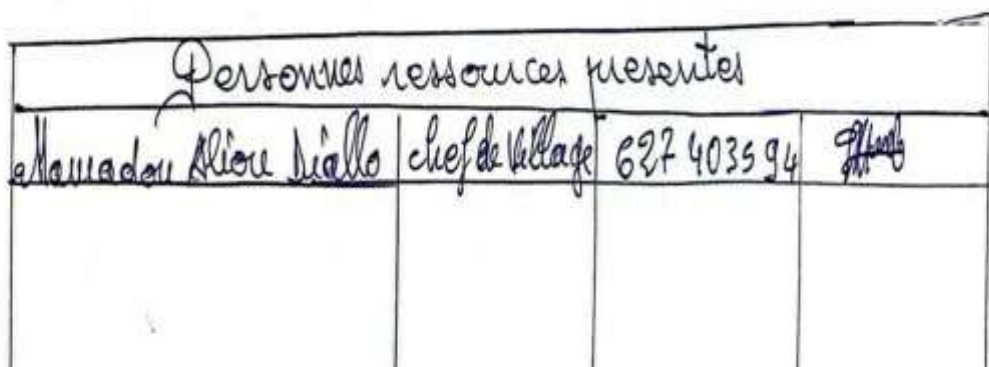 Personnes ressources presentes
Mamadou Aliou Diallo chef de village 627 403594